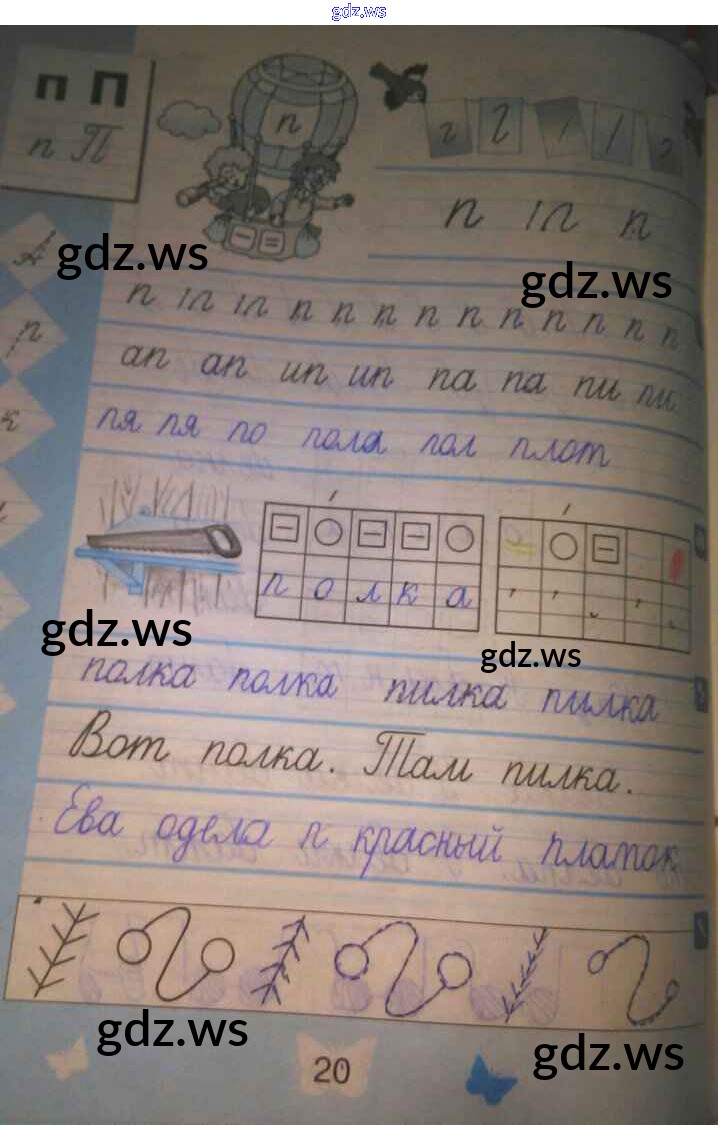 gdz.ws
п П
п П
п
п п п
А
gdz.ws
gdz.ws
п п п п п п п п п п п п п
п
ап ап ип ип па па пи пи
к
пя пя по пола пол плот
п о л к а
gdz.ws
gdz.ws
полка полка пилка пилка
Вот полка. Там пилка.
Ева одела п красный платок
gdz.ws
gdz.ws
20